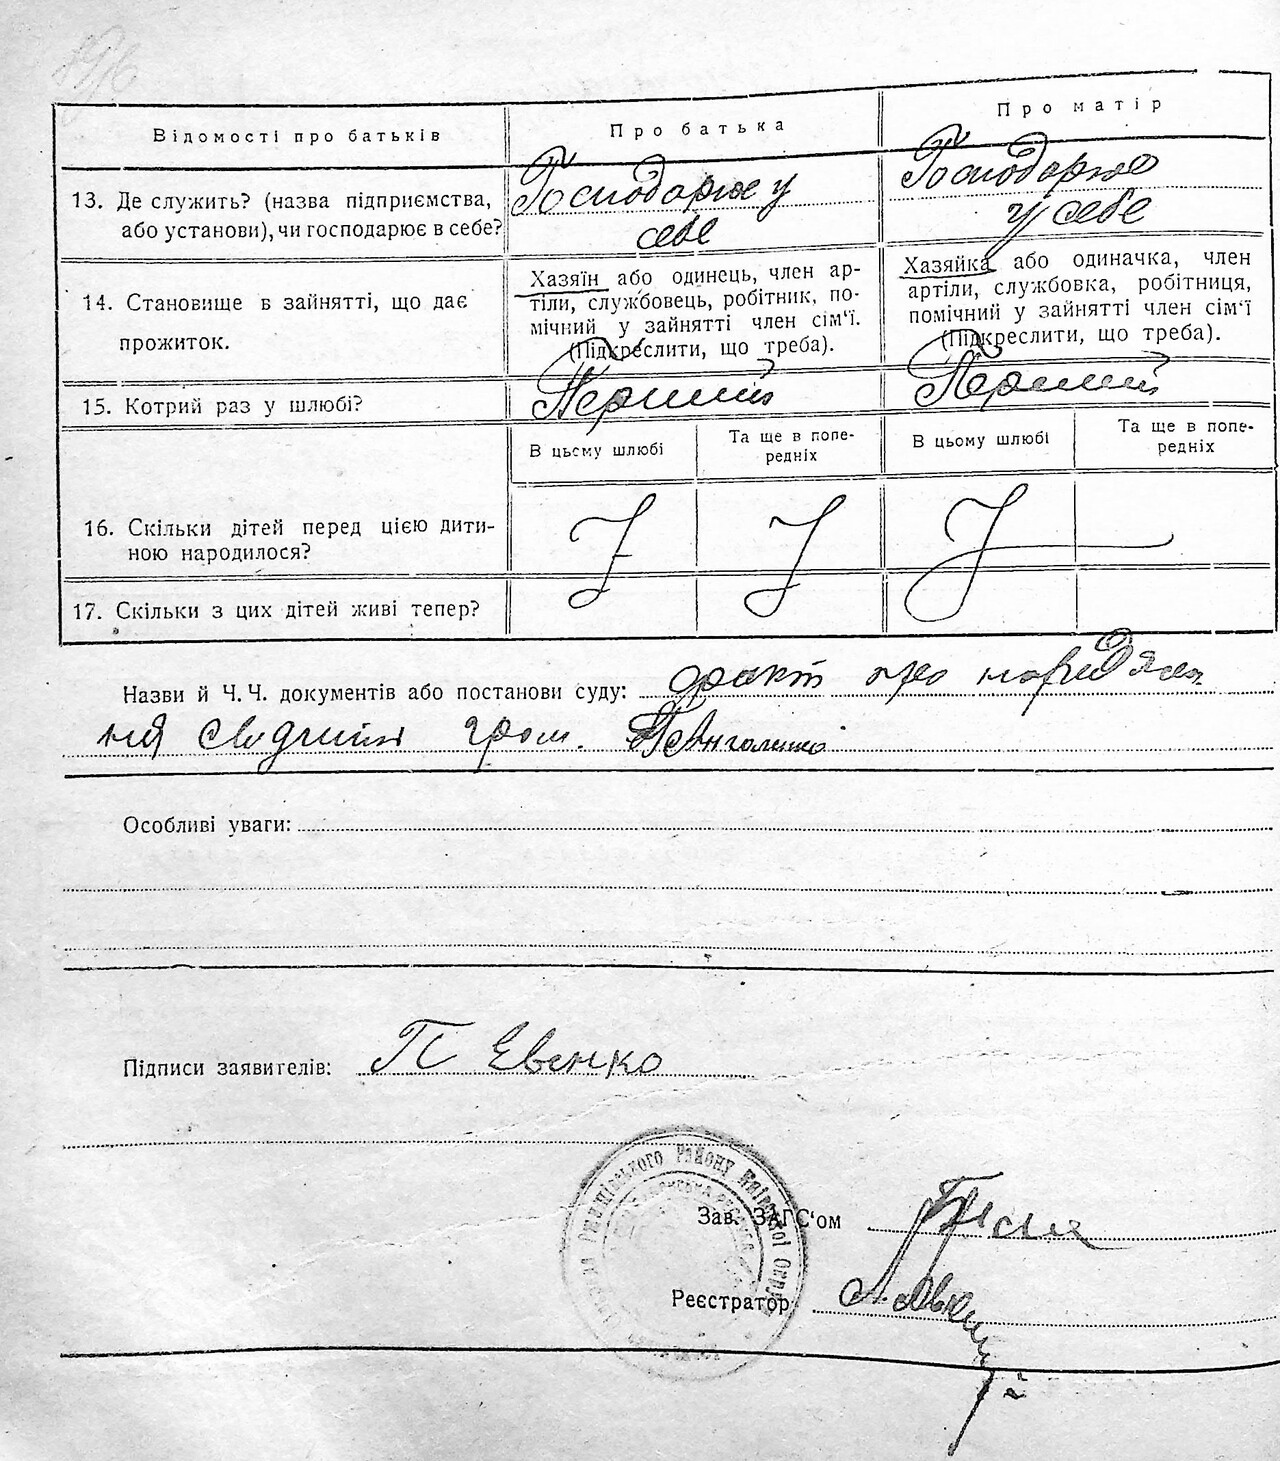 Відомості про батьків
Про батька
Про матір
13. Де служить? (назва підприємства,
або установи), чи господарює в себе?
Господарює у
себе
Господарює
у себе
14. Становище в зайнятті, що дає
прожиток.
Хазяїн або одинець, член ар-
тіли, службовець, робітник, по-
мічний у зайнятті член сім'ї.
(Підкреслити, що треба).
Хазяйка або одиначка, член
артіли, службовка, робітниця,
помічний у зайнятті член сім'ї
(Підкреслити, що треба).
15. Котрий раз у шлюбі?
Перший
Перший
В цьому шлюбі
Та ще в попе-
редніх
В цьому шлюбі
Та ще в попе-
редніх
16. Скільки дітей перед цією дити-
ною народилося?
17. Скільки з цих дітей живі тепер?
Назви й Ч. Ч. документів або постанови суду: факт про народжен
ня свідчить гром.
Особливі уваги:
Підписи заявителів: П Евенко
району Київської Округи
Зав. ЗАГС'ом
Реєстратор